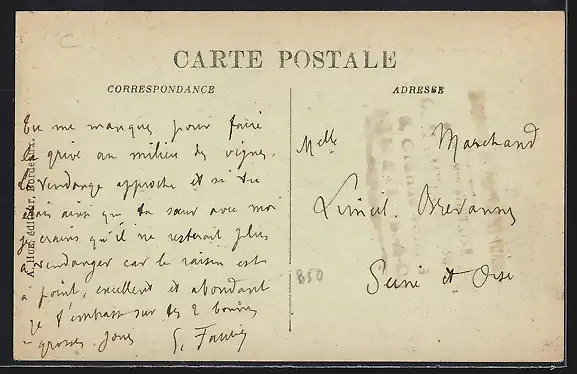 CARTE POSTALE
CORRESPONDANCE
ADRESSE
Tu me manques pour faire
la grive au milieu des vignes.
La vendange approche et si tu
étais ainsi que ta sœur avec moi
je crains qu'il ne resterait plus
à vendanger car le raisin est
à point, excellent et abondant
je t'embrasse sur tes 2 bonnes
grosses joues
Melle Marchand
Limeil Brévannes
Seine et Oise
850
A. Hue, éditeur, Bordeaux.